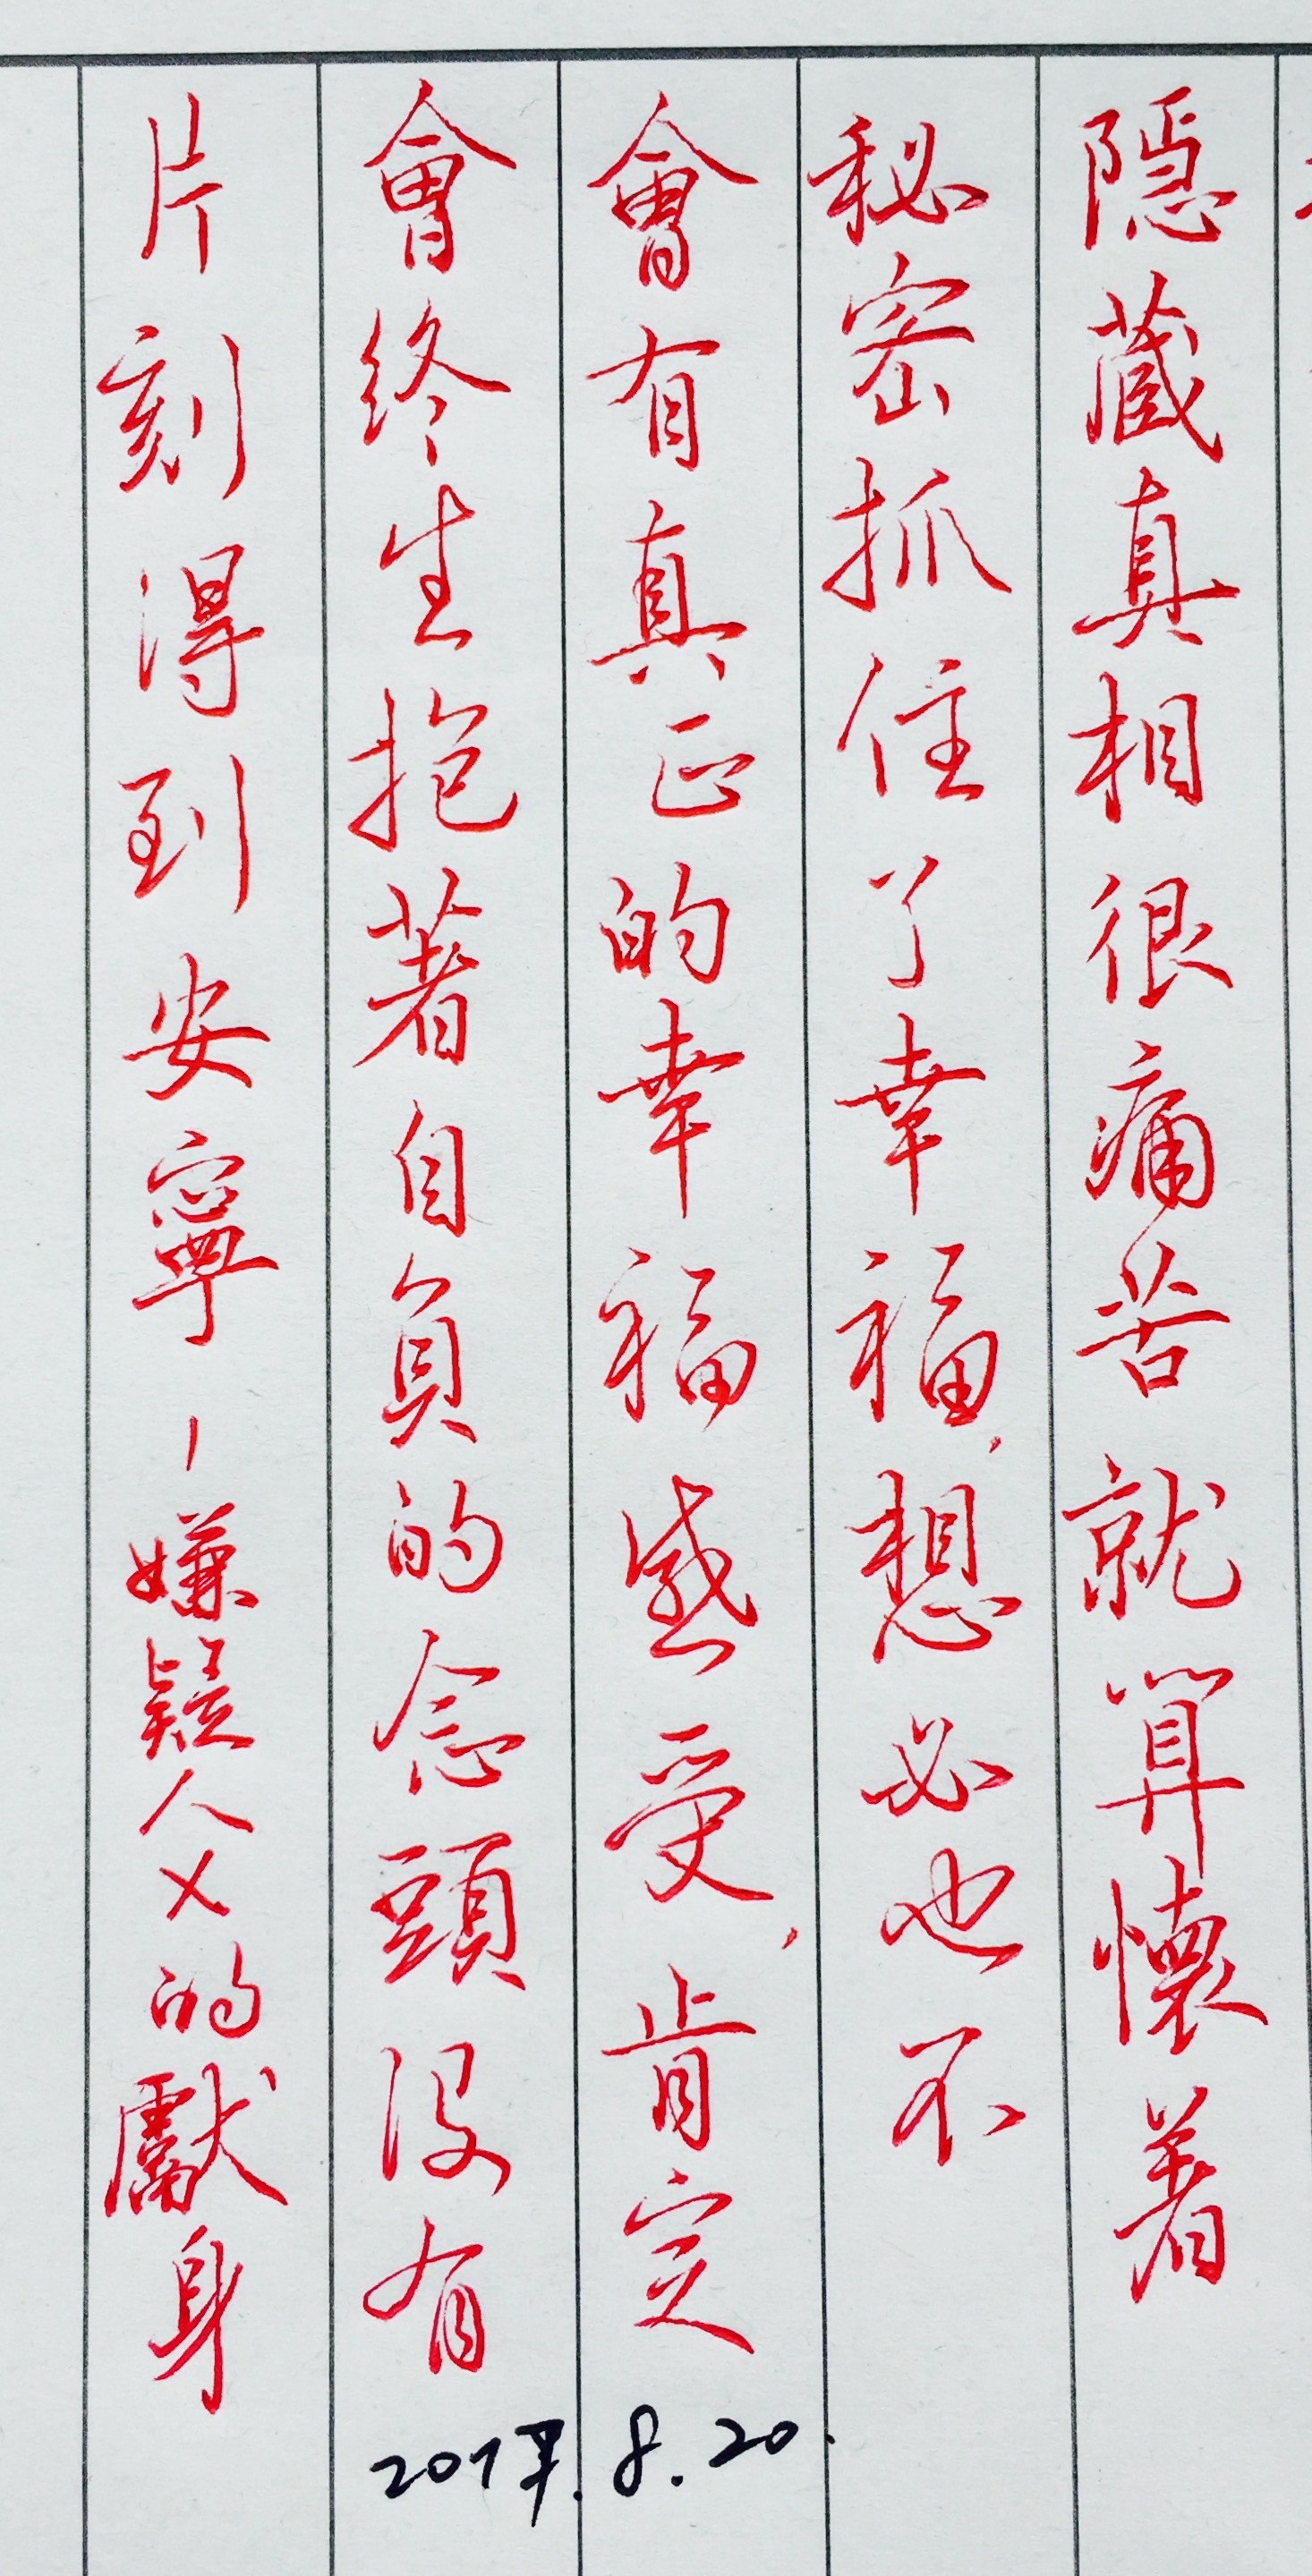 隱藏真相很痛苦就算懷着
秘密抓住了幸福，想必也不
會有真正的幸福感受，肯定
會終生抱著自負的念頭没有
片刻得到安寧—嫌疑人X的獻身
8.20.